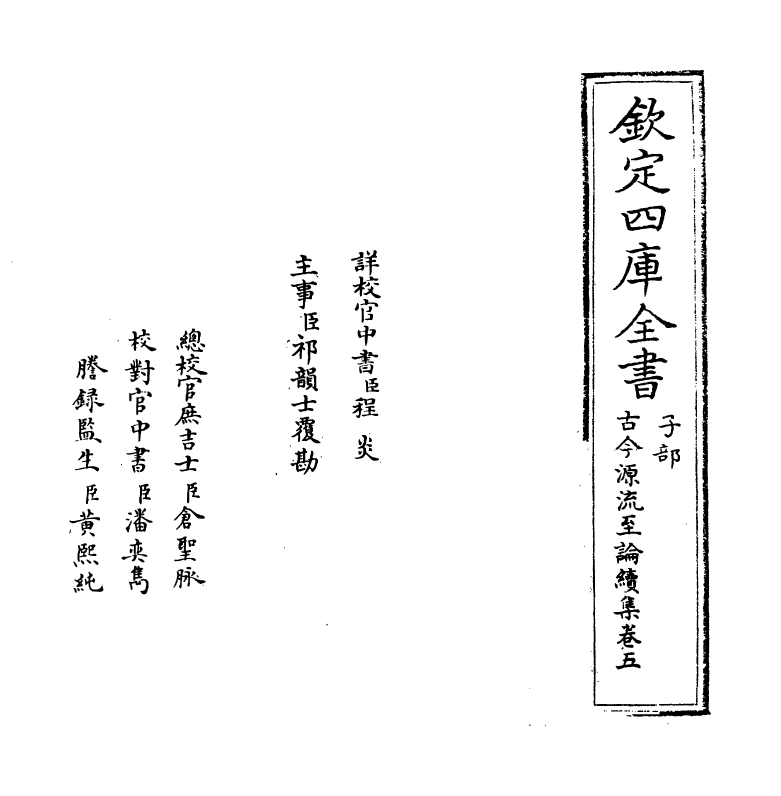 欽定四庫全書
子部
古今源流至論續集卷五
詳校官中書臣程炎
主事臣祁韻士覆勘
總校官庶吉士臣倉聖脉
校對官中書臣潘奕雋
謄録監生臣黄熙純